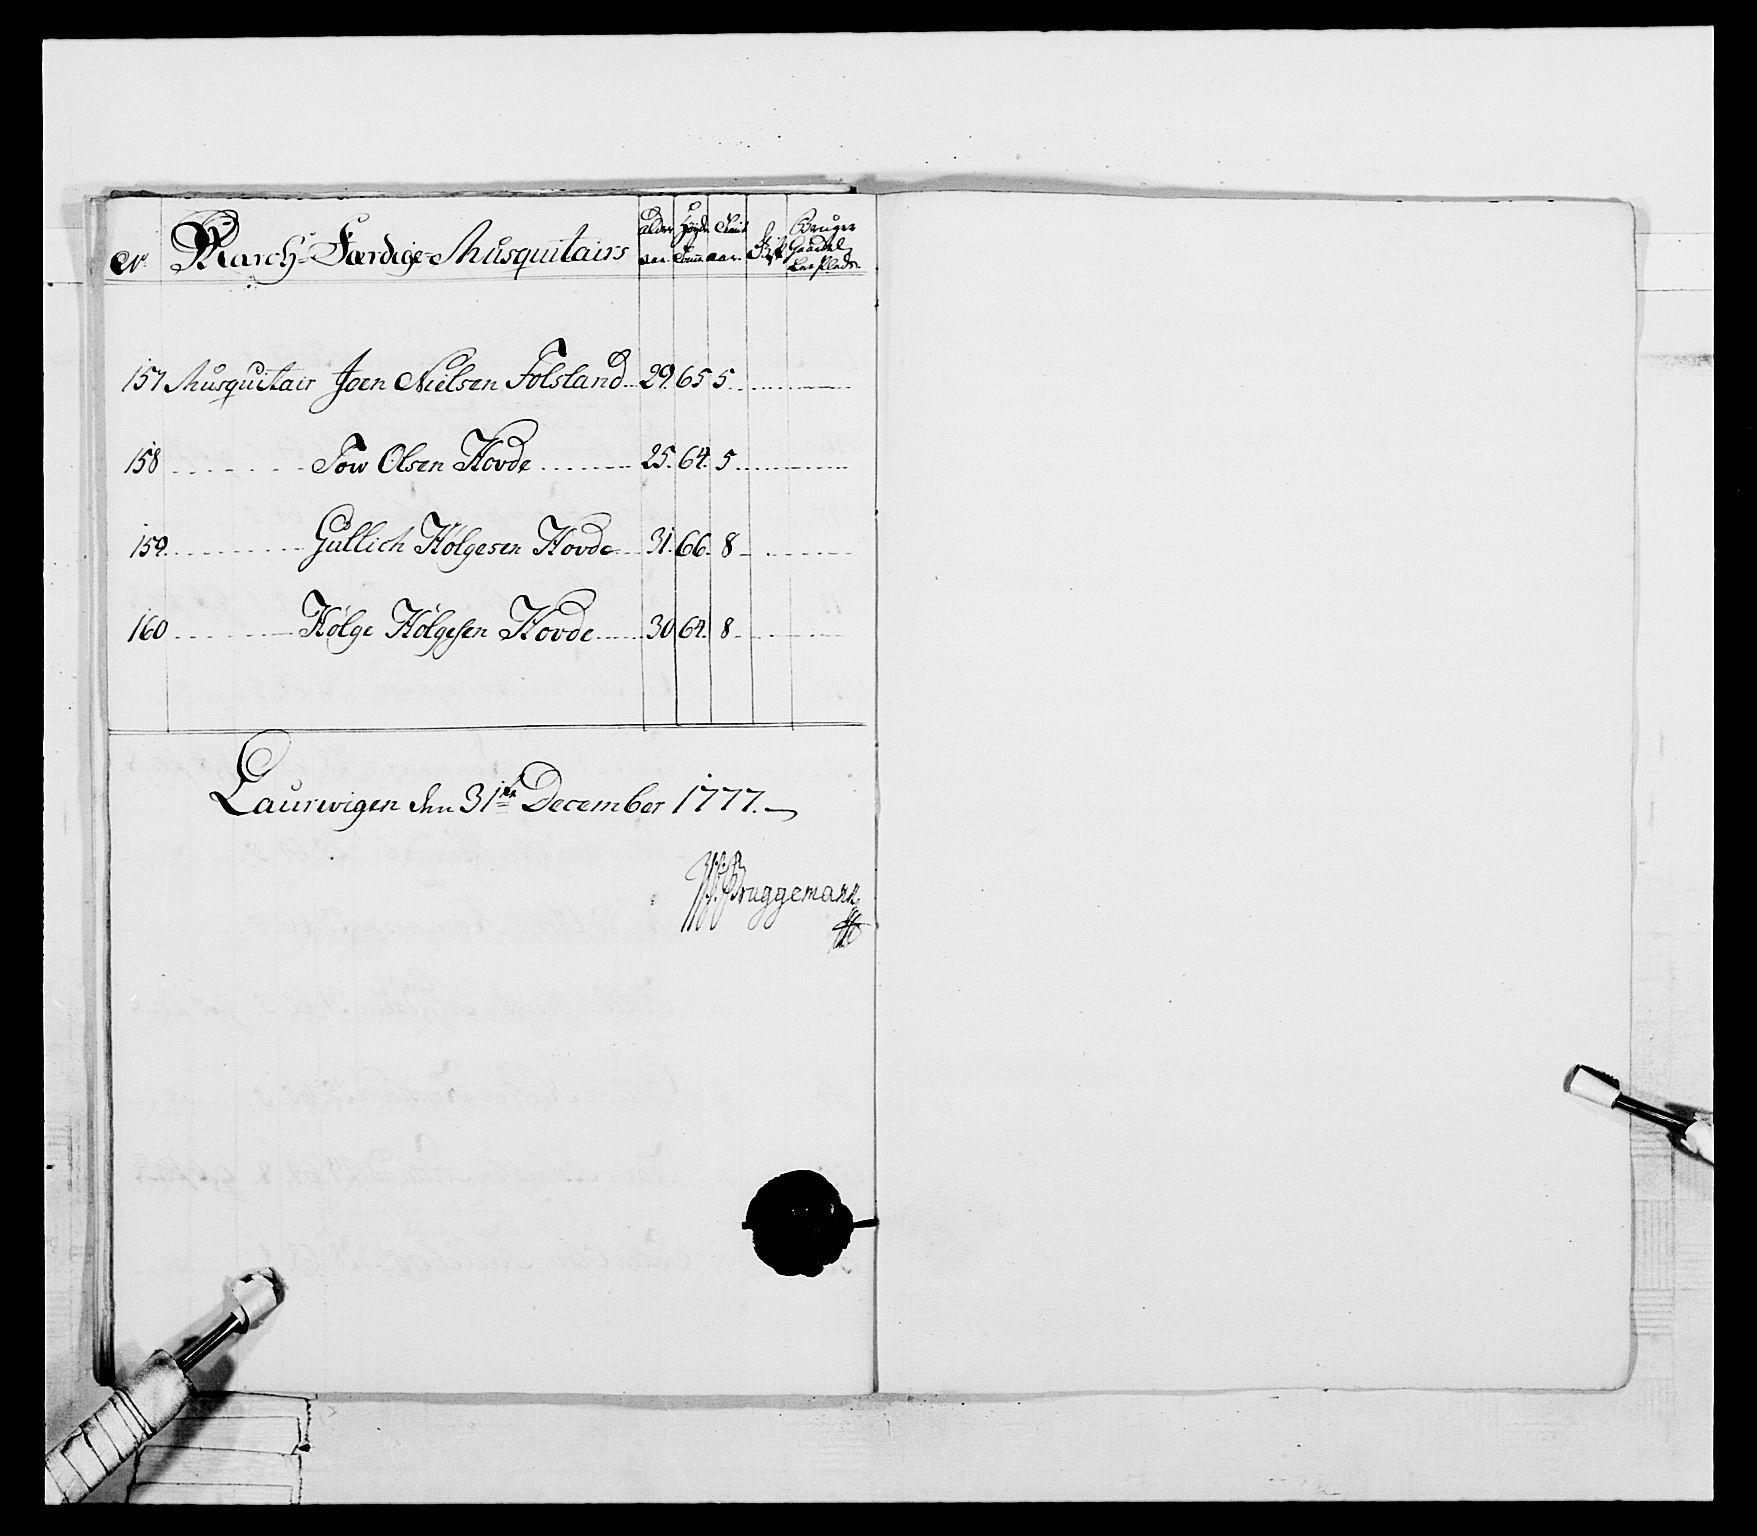 No. March-Færdige Musquitairs Alder aar. Høyde Tom̄e Tient aar. Gift Bruger Gaardel Lee Plads
157 Musquitair Joen Nielsen Folsland 29. 65 5
158 Tow Olsen Hovde 25. 64. 5
159 Gullich Hølgesen Hovde 31. 66. 8
160 Hølge Hølgesen Hovde 30 64. 8
Laurwigen den 31te December 1777.
Bruggemann